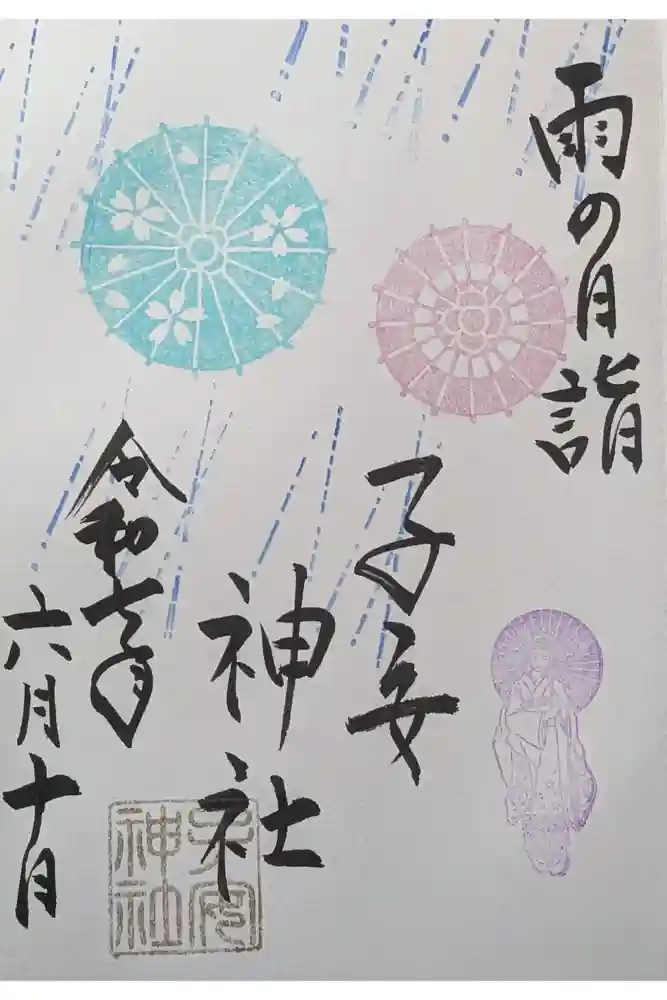 雨の月詣
子安
神社
令和七年
六月十日
子安
神社